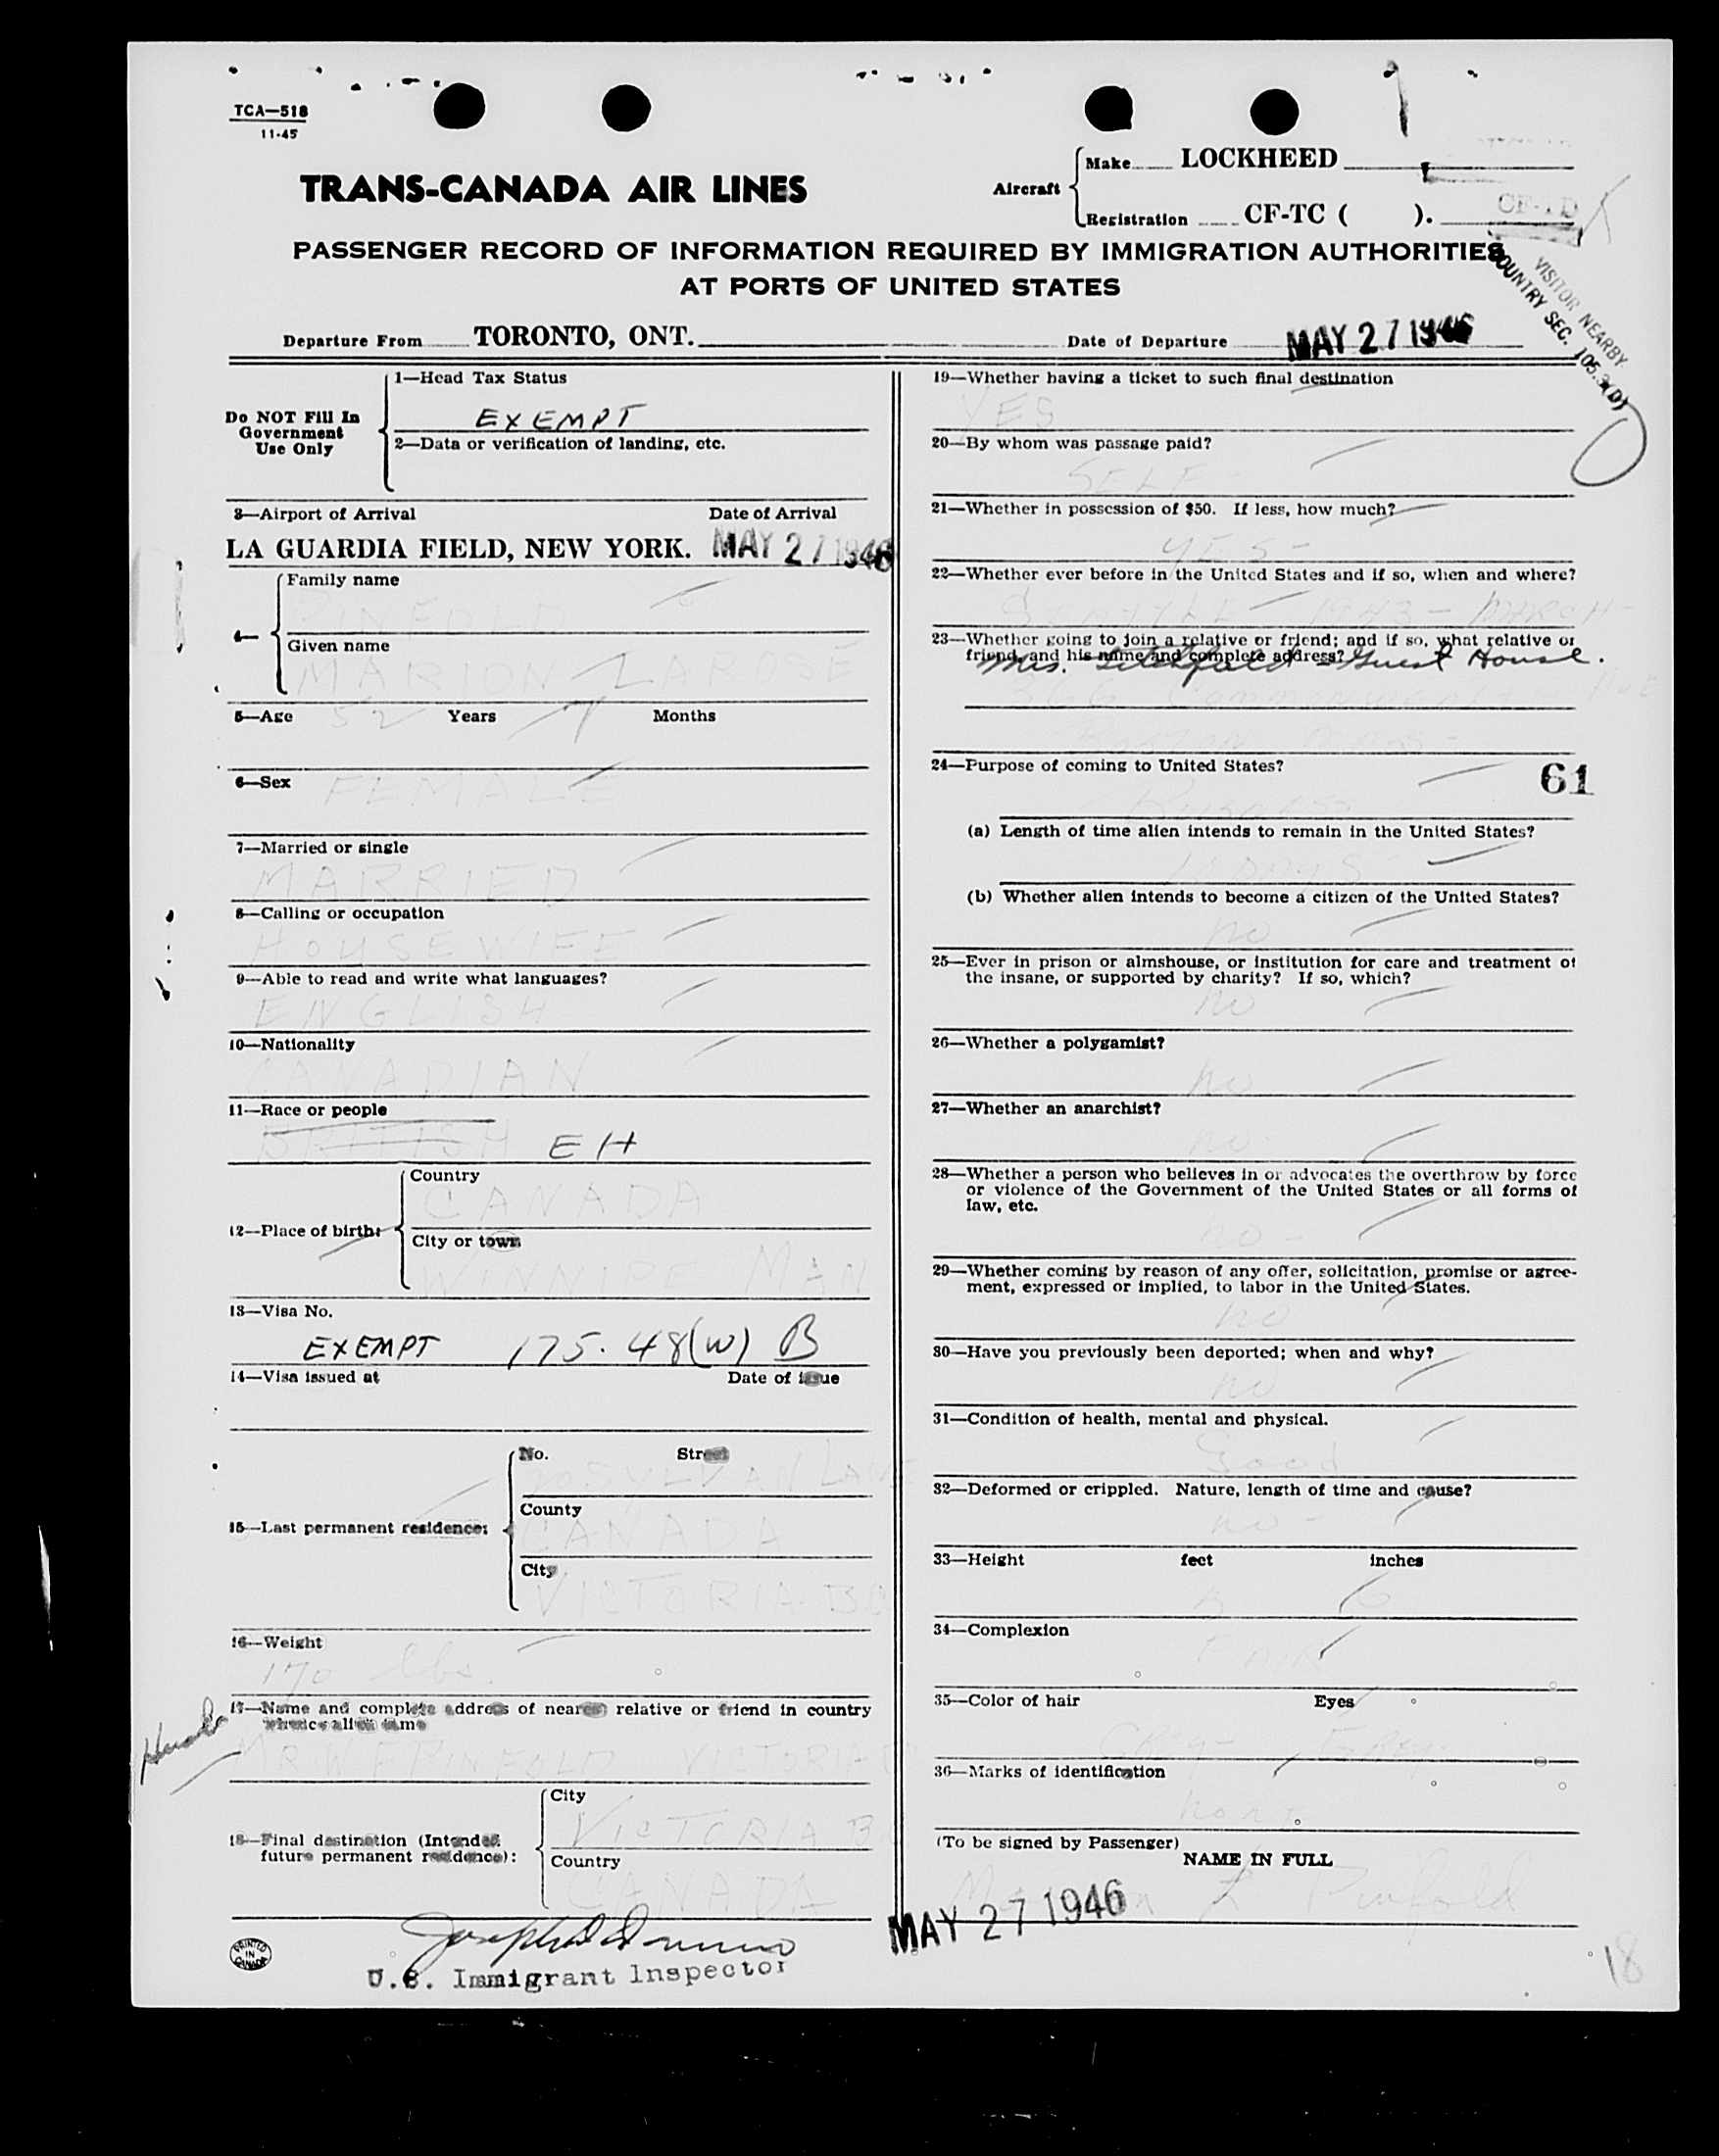 TCA—518
11-45
TRANS-CANADA AIR LINES
Aircraft
Make LOCKHEED
Registration CF-TC ( ). CF-TD
PASSENGER RECORD OF INFORMATION REQUIRED BY IMMIGRATION AUTHORITIES
AT PORTS OF UNITED STATES
VISITOR NEARBY
COUNTRY SEC. 105.3(D)
Departure From TORONTO, ONT.
Date of Departure MAY 27 1946
Do NOT Fill In
Government
Use Only
1—Head Tax Status
EXEMPT
2—Data or verification of landing, etc.
3—Airport of Arrival Date of Arrival
LA GUARDIA FIELD, NEW YORK. MAY 27 1946
4—
Family name
PINFOLD
Given name
MARION LAROSE
5—Age 52 Years 7 Months
6—Sex FEMALE
7—Married or single
MARRIED
8—Calling or occupation
HOUSEWIFE
9—Able to read and write what languages?
ENGLISH
10—Nationality
CANADIAN
11—Race or people
BRITISH EH
12—Place of birth:
Country
CANADA
City or town
WINNIPE MAN
13—Visa No.
EXEMPT 175.48(W) B
14—Visa issued at Date of issue
15—Last permanent residence:
No. Street
SYLVAN LANE
County
CANADA
City
VICTORIA BC
16—Weight
170 lbs.
17—Name and complete address of nearest relative or friend in country
whence alien came
MR W F PINFOLD VICTORIA
18—Final destination (Intended
future permanent residence):
City
VICTORIA B
Country
CANADA
U.S. Immigrant Inspector
PRINTED
IN
CANADA
19—Whether having a ticket to such final destination
YES
20—By whom was passage paid?
SELF -
21—Whether in possession of $50. If less, how much?
YES -
22—Whether ever before in the United States and if so, when and where?
SEATTLE - 1943 - MARCH -
23—Whether going to join a relative or friend; and if so, what relative or
friend, and his name and complete address?
Mrs. - Guest House.
366 Commonwealth AVE
Boston Mass -
24—Purpose of coming to United States?
61
Business
(a) Length of time alien intends to remain in the United States?
DAYS
(b) Whether alien intends to become a citizen of the United States?
no
25—Ever in prison or almshouse, or institution for care and treatment of
the insane, or supported by charity? If so, which?
no
26—Whether a polygamist?
no
27—Whether an anarchist?
no
28—Whether a person who believes in or advocates the overthrow by force
or violence of the Government of the United States or all forms of
law, etc.
no -
29—Whether coming by reason of any offer, solicitation, promise or agree-
ment, expressed or implied, to labor in the United States.
no
30—Have you previously been deported; when and why?
no
31—Condition of health, mental and physical.
Good
32—Deformed or crippled. Nature, length of time and cause?
no -
33—Height feet inches
5 6
34—Complexion
FAIR
35—Color of hair Eyes
Grey - Grey
36—Marks of identification
none
(To be signed by Passenger)
NAME IN FULL
Marion L Pinfold
MAY 27 1946
18